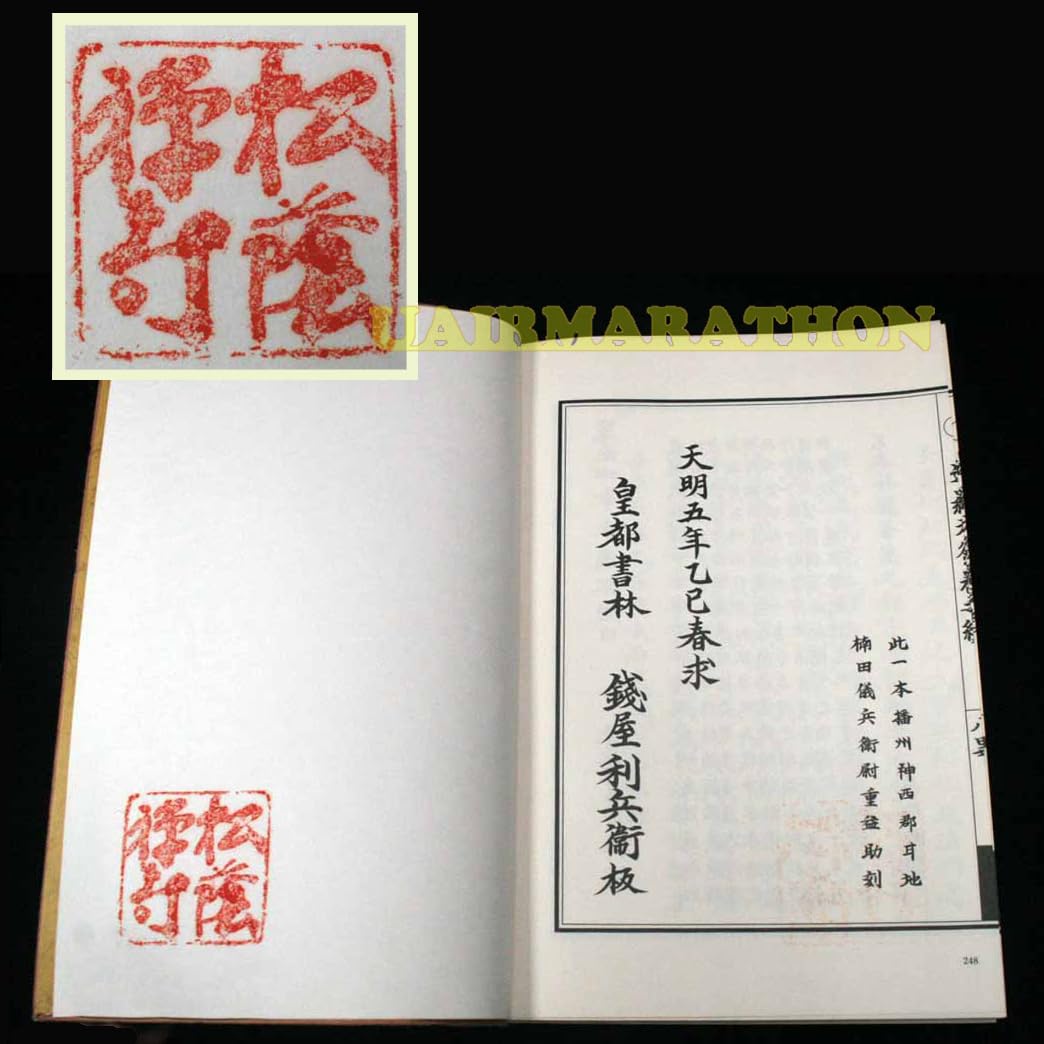 松蔭
禅寺
UAIRMARATHON
此一本播州神西郡耳地
楠田儀兵衛尉重益助刻
天明五年乙巳春求
皇都書林 錢屋利兵衛板
248
松蔭
禅寺